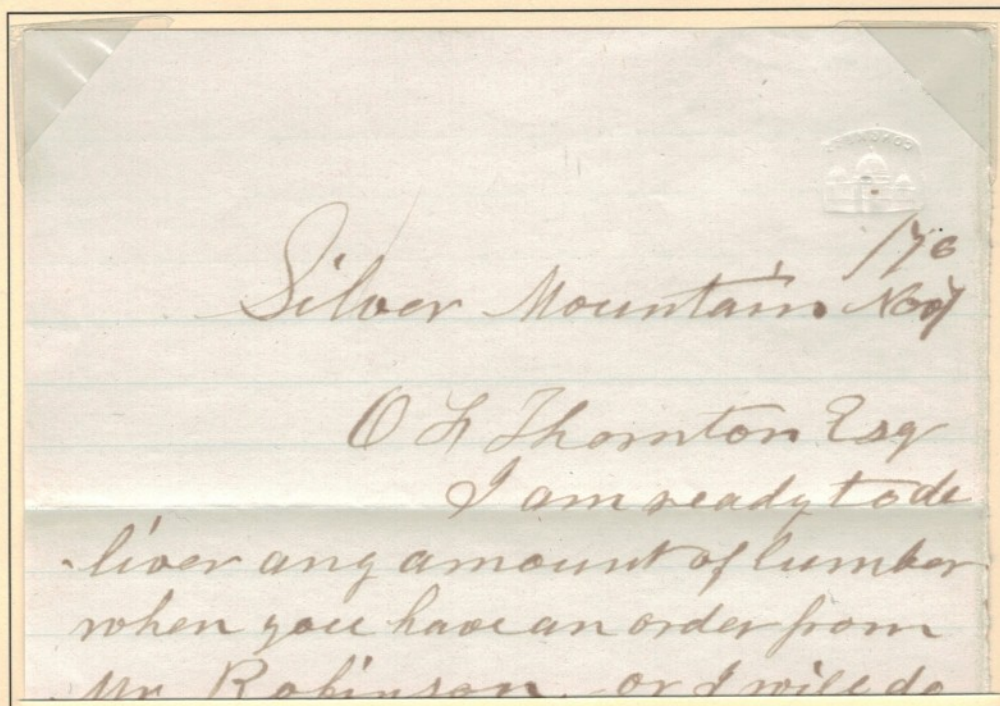 Silver Mountain Nov
O F Thornton Esq
I am ready to de
liver any amount of lumber
when you have an order from
Mr Robinson or I will do